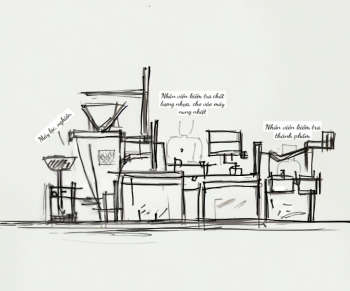 Máy lọc, nghiền
Nhân viên kiểm tra chất
lượng nhựa, cho vào máy
nung nhiệt
Nhân viên kiểm tra
thành phẩm